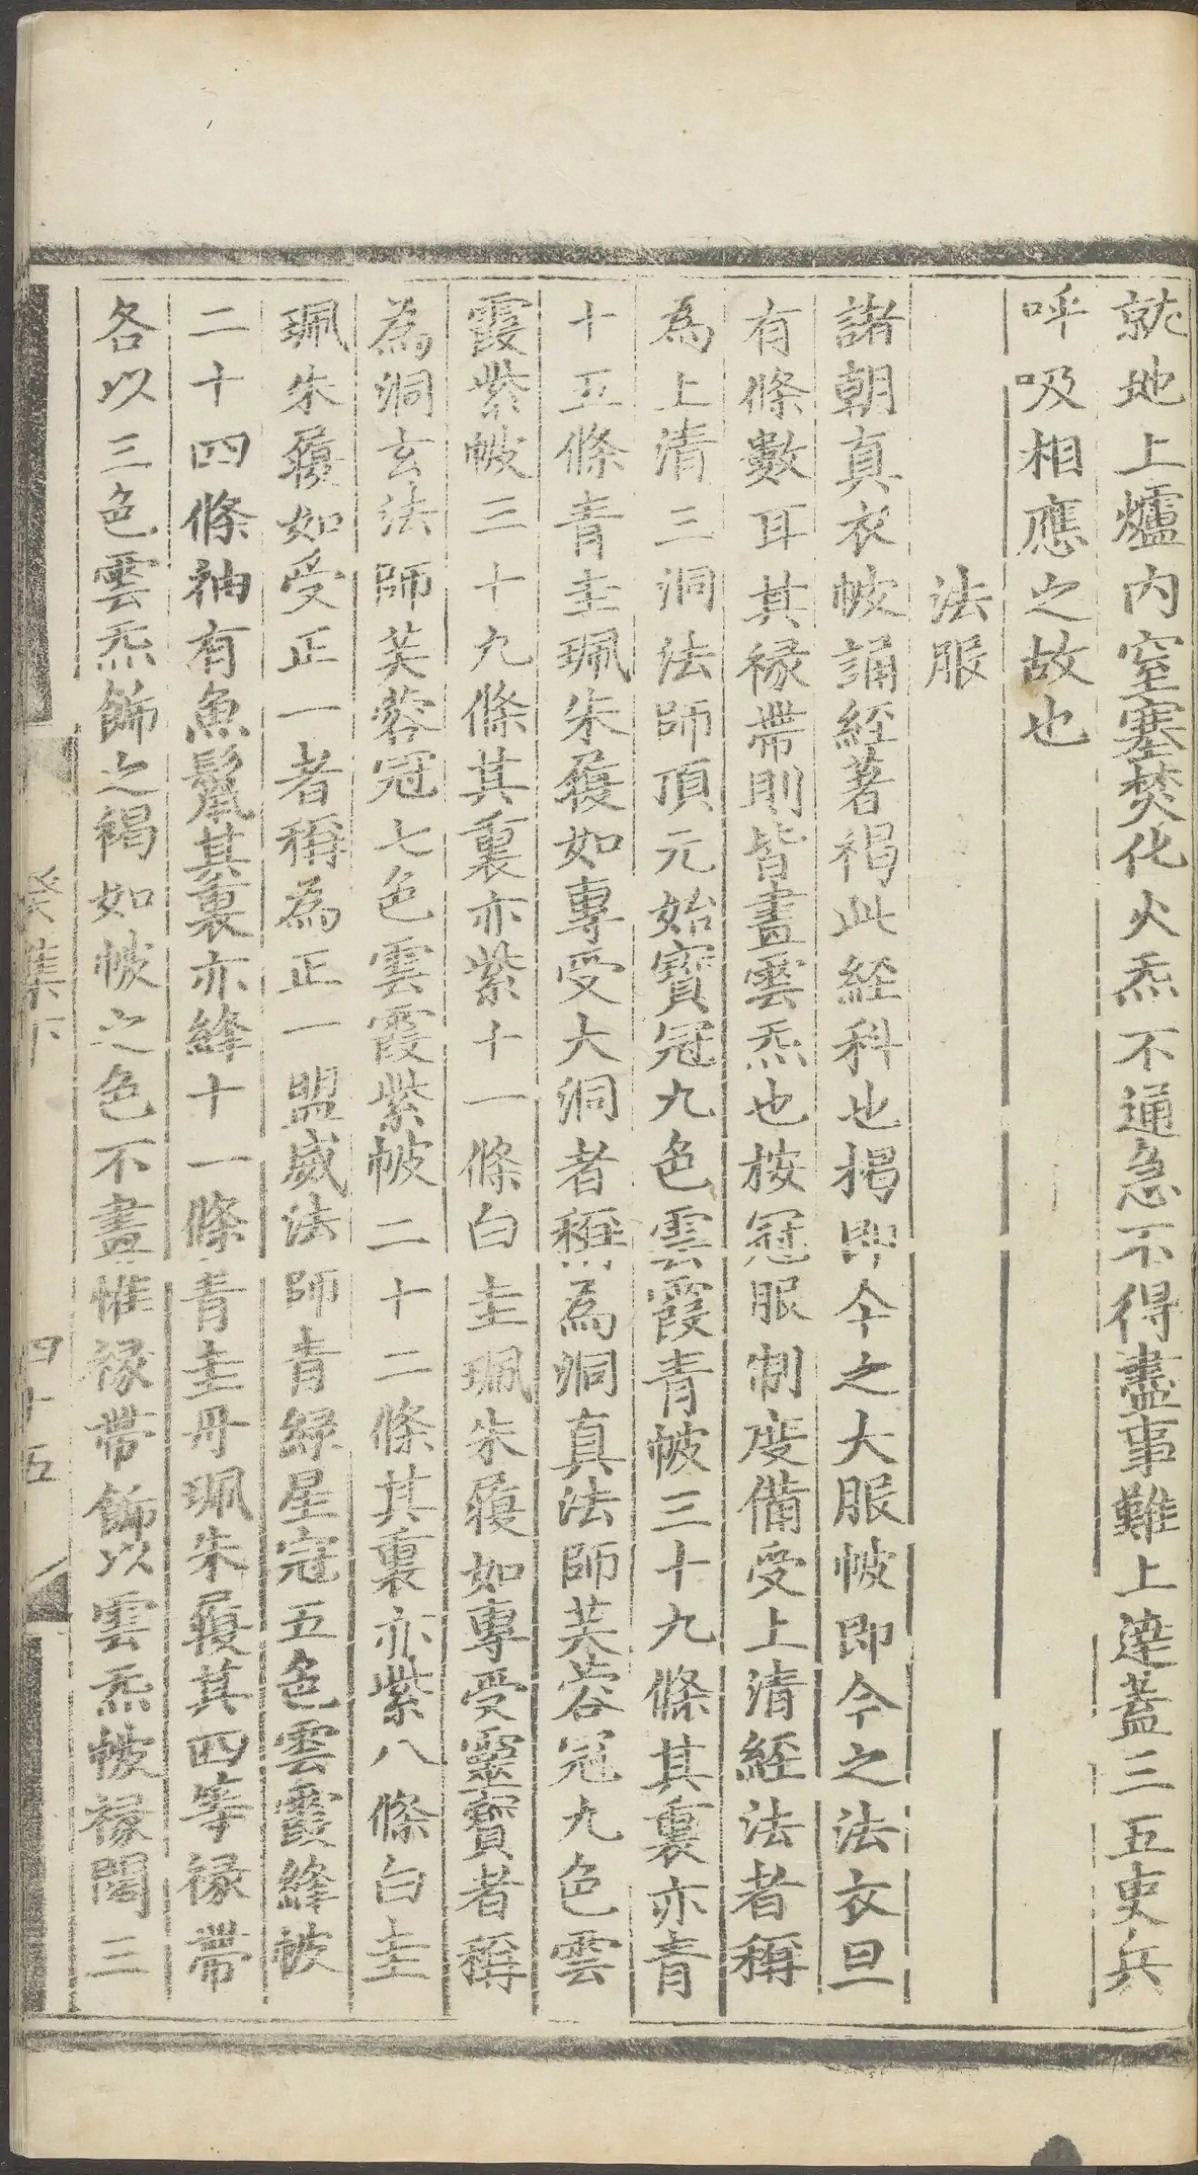 就地上爐内窒塞焚化火炁不通急不得盡事難上達蓋三五吏兵
呼吸相應之故也
法服
諸朝真衣帔誦經著褐此經科也揭即今之大服帔即今之法衣旦
有條數耳其褖帶則皆畫雲炁也按冠服制度備受上清經法者稱
為上清三洞法師頂元始寳冠九色雲霞青帔三十九條其裏亦青
十五條青圭珮朱履如專受大洞者稱為洞真法師芙蓉冠九色雲
霞紫帔三十九條其裏亦紫十一條白圭珮朱履如專受靈寳者稱
為洞玄法師芙蓉冠七色雲霞紫帔二十二條其裏亦紫八條白圭
珮朱履如受正一者稱為正一盟威法師青緑星冠五色雲霞絳帔
二十四條袖有魚鬛其裏亦絳十一條青圭丹珮朱履其四等褖帶
各以三色雲炁飾之褐如帔之色不畫惟褖帶飾以雲炁帔褖闊三
癸集下
四十五